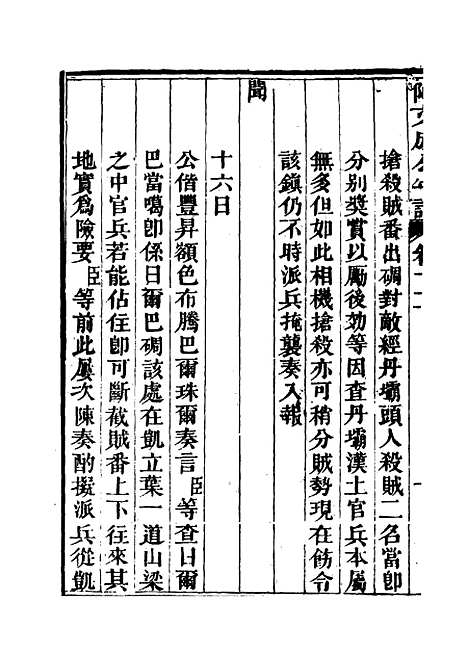 搶殺賊番出碉對敵經丹壩頭人殺賊二名當卽
分別獎賞以勵後効等因查丹壩漢土官兵本屬
無多但如此相機搶殺亦可稍分賊勢現在飭令
該鎮仍不時派兵掩襲奏入報
聞
十六日
公偕豐昇額色布騰巴爾珠爾奏言臣等查日爾
巴當噶卽係日爾巴碉該處在凱立葉一道山梁
之中官兵若能佔住卽可斷截賊番上下往來其
地實爲險要臣等前此屢次陳奏酌撥派兵從凱